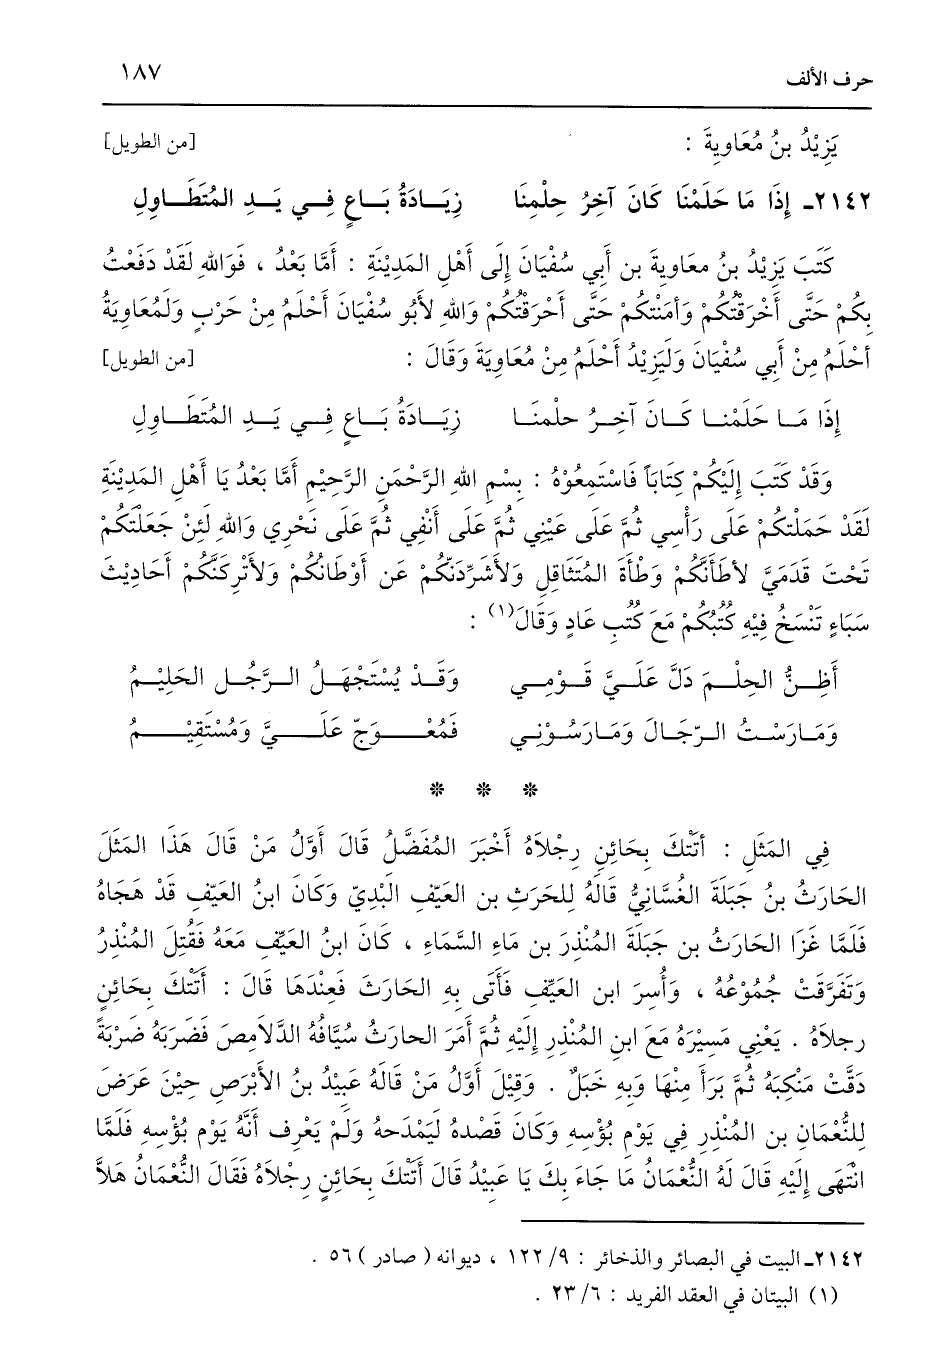 حرف الألف ١٨٧
يَزِيْدُ بنُ مُعَاوِيةَ : [من الطويل]
٢١٤٢ـ إِذَا مَا حَلَمْنَا كَانَ آخِرُ حِلْمِنَا زِيَادَةُ بَاعٍ فِي يَدِ المُتَطَاوِلِ
كَتَبَ يَزِيْدُ بنُ معَاويةَ بن أَبي سُفْيَانَ إِلَى أَهْلِ المَدِيْنَةِ : أَمَّا بَعْدُ ، فَوَاللهِ لَقَدْ دَفَعْتُ
بِكُمْ حَتَّى أَخْرَقْتُكُمْ وَأمَنْتكُمْ حَتَّى أَحْرَقْتُكُمْ وَاللهِ لأَبُو سُفْيَانَ أَحْلَمُ مِنْ حَرْبٍ وَلَمُعَاوِيَةُ
أَحْلَمُ مِنْ أَبِي سُفْيَانَ وَلَيَزِيْدُ أَحْلَمُ مِنْ مُعَاوِيَةَ وَقَالَ : [من الطويل]
إِذَا مَا حَلَمْنا كَانَ آخِرُ حلْمنَا زِيَادَةُ بَاعٍ فِي يَدِ المُتَطَاوِلِ
وَقَدْ كَتَبَ إِلَيْكُمْ كِتَاباً فَاسْتَمِعُوْهُ : بِسْمِ اللهِ الرَّحْمَنِ الرَّحِيْمِ أَمَّا بَعْدُ يَا أَهْلِ المَدِيْنَةِ
لَقَدْ حَمَلْتكُمْ عَلَى رَأْسِي ثُمَّ عَلَى عَيْنِي ثُمَّ عَلَى أَنْفِي ثُمَّ عَلَى نَحْرِي وَاللهِ لَئِنْ جَعَلْتكُمْ
تَحْتَ قَدَمَيَّ لأطَأَنَّكُمْ وَطْأَةَ المُتَثَاقِلِ وَلأُشَرِّدَنّكُمْ عَن أَوْطَانُكُمْ وَلأَتْركَنَّكُمْ أَحَادِيْثَ
سَبَاءٍ تَنْسَخُ فِيْهِ كُتُبُكُمْ مَعَ كُتُبِ عَادٍ وَقَالَ(١) :
أَظِنُّ الحِلْمَ دَلَّ عَلَيَّ قَوْمِي وَقَدْ يُسْتَجْهَلُ الرَّجُل الحَلِيْمُ
وَمَارَسْتُ الرِّجَالَ وَمَارَسُوْنِي فَمُعْوَجّ عَلَيَّ وَمُسْتَقِيْمُ
* * *
فِي المَثَلِ : أَتَتْكَ بِحَائِنٍ رِجْلَاهُ أَخْبَرَ المُفَضَّلُ قَالَ أَوَّلُ مَنْ قَالَ هَذَا المَثَلَ
الحَارَثُ بنُ جَبَلَةَ الغُسَّانِيُّ قَالَهُ لِلحَرَثِ بن العَيّفِ البْدِيّ وَكَانَ ابنُ العَيّفِ قَدْ هَجَاهُ
فَلَمَّا غَزَا الحَارَثُ بن جَبَلَةَ المُنْذِرَ بن مَاءِ السَّمَاءِ ، كَانَ ابنُ العَيّفِ مَعَهُ فَقُتِلَ المُنْذِرُ
وَتَفَرَّقَتْ جُمُوْعُهُ ، وَأُسِرَ ابن العَيّفِ فَأَتَى بِهِ الحَارَثَ فَعِنْدَهَا قَالَ : أَتَتْكَ بِحَائنٍ
رجلَاهُ . يَعْنِي مَسِيْرَهُ مَعَ ابنِ المُنْذِرِ إِلَيْهِ ثُمَّ أَمَرَ الحارثُ سُيَّافهُ الدَّلَامِصَ فَضَرَبَهُ ضَرْبَةً
دَقَّتْ مَنْكِبَهُ ثُمَّ بَرَأَ مِنْهَا وَبِهِ خَبَلٌ . وَقِيْلَ أَوَّلُ مَنْ قَالَهُ عَبِيْدُ بنُ الأَبْرَصِ حِيْنَ عَرَضَ
لِلنُّعْمَانِ بن المُنْذِرِ فِي يَوْمِ بُؤْسِهِ وَكَانَ قَصْدهُ لَيَمْدَحهُ وَلَمْ يَعْرِف أَنَّهُ يَوْم بُؤْسِهِ فَلَمَّا
انْتَهَى إِلَيْهِ قَالَ لَهُ النُّعْمَانُ مَا جَاءَ بِكَ يَا عَبِيْدُ قَالَ أَتَتْكَ بِحَائنٍ رِجْلَاهُ فَقَالَ النُّعْمَانُ هَلَّا
٢١٤٢ـ البيت في البصائر والذخائر : ٩/ ١٢٢ ، ديوانه ( صادر ) ٥٦ .
(١) البيتان في العقد الفريد : ٦/ ٢٣ .